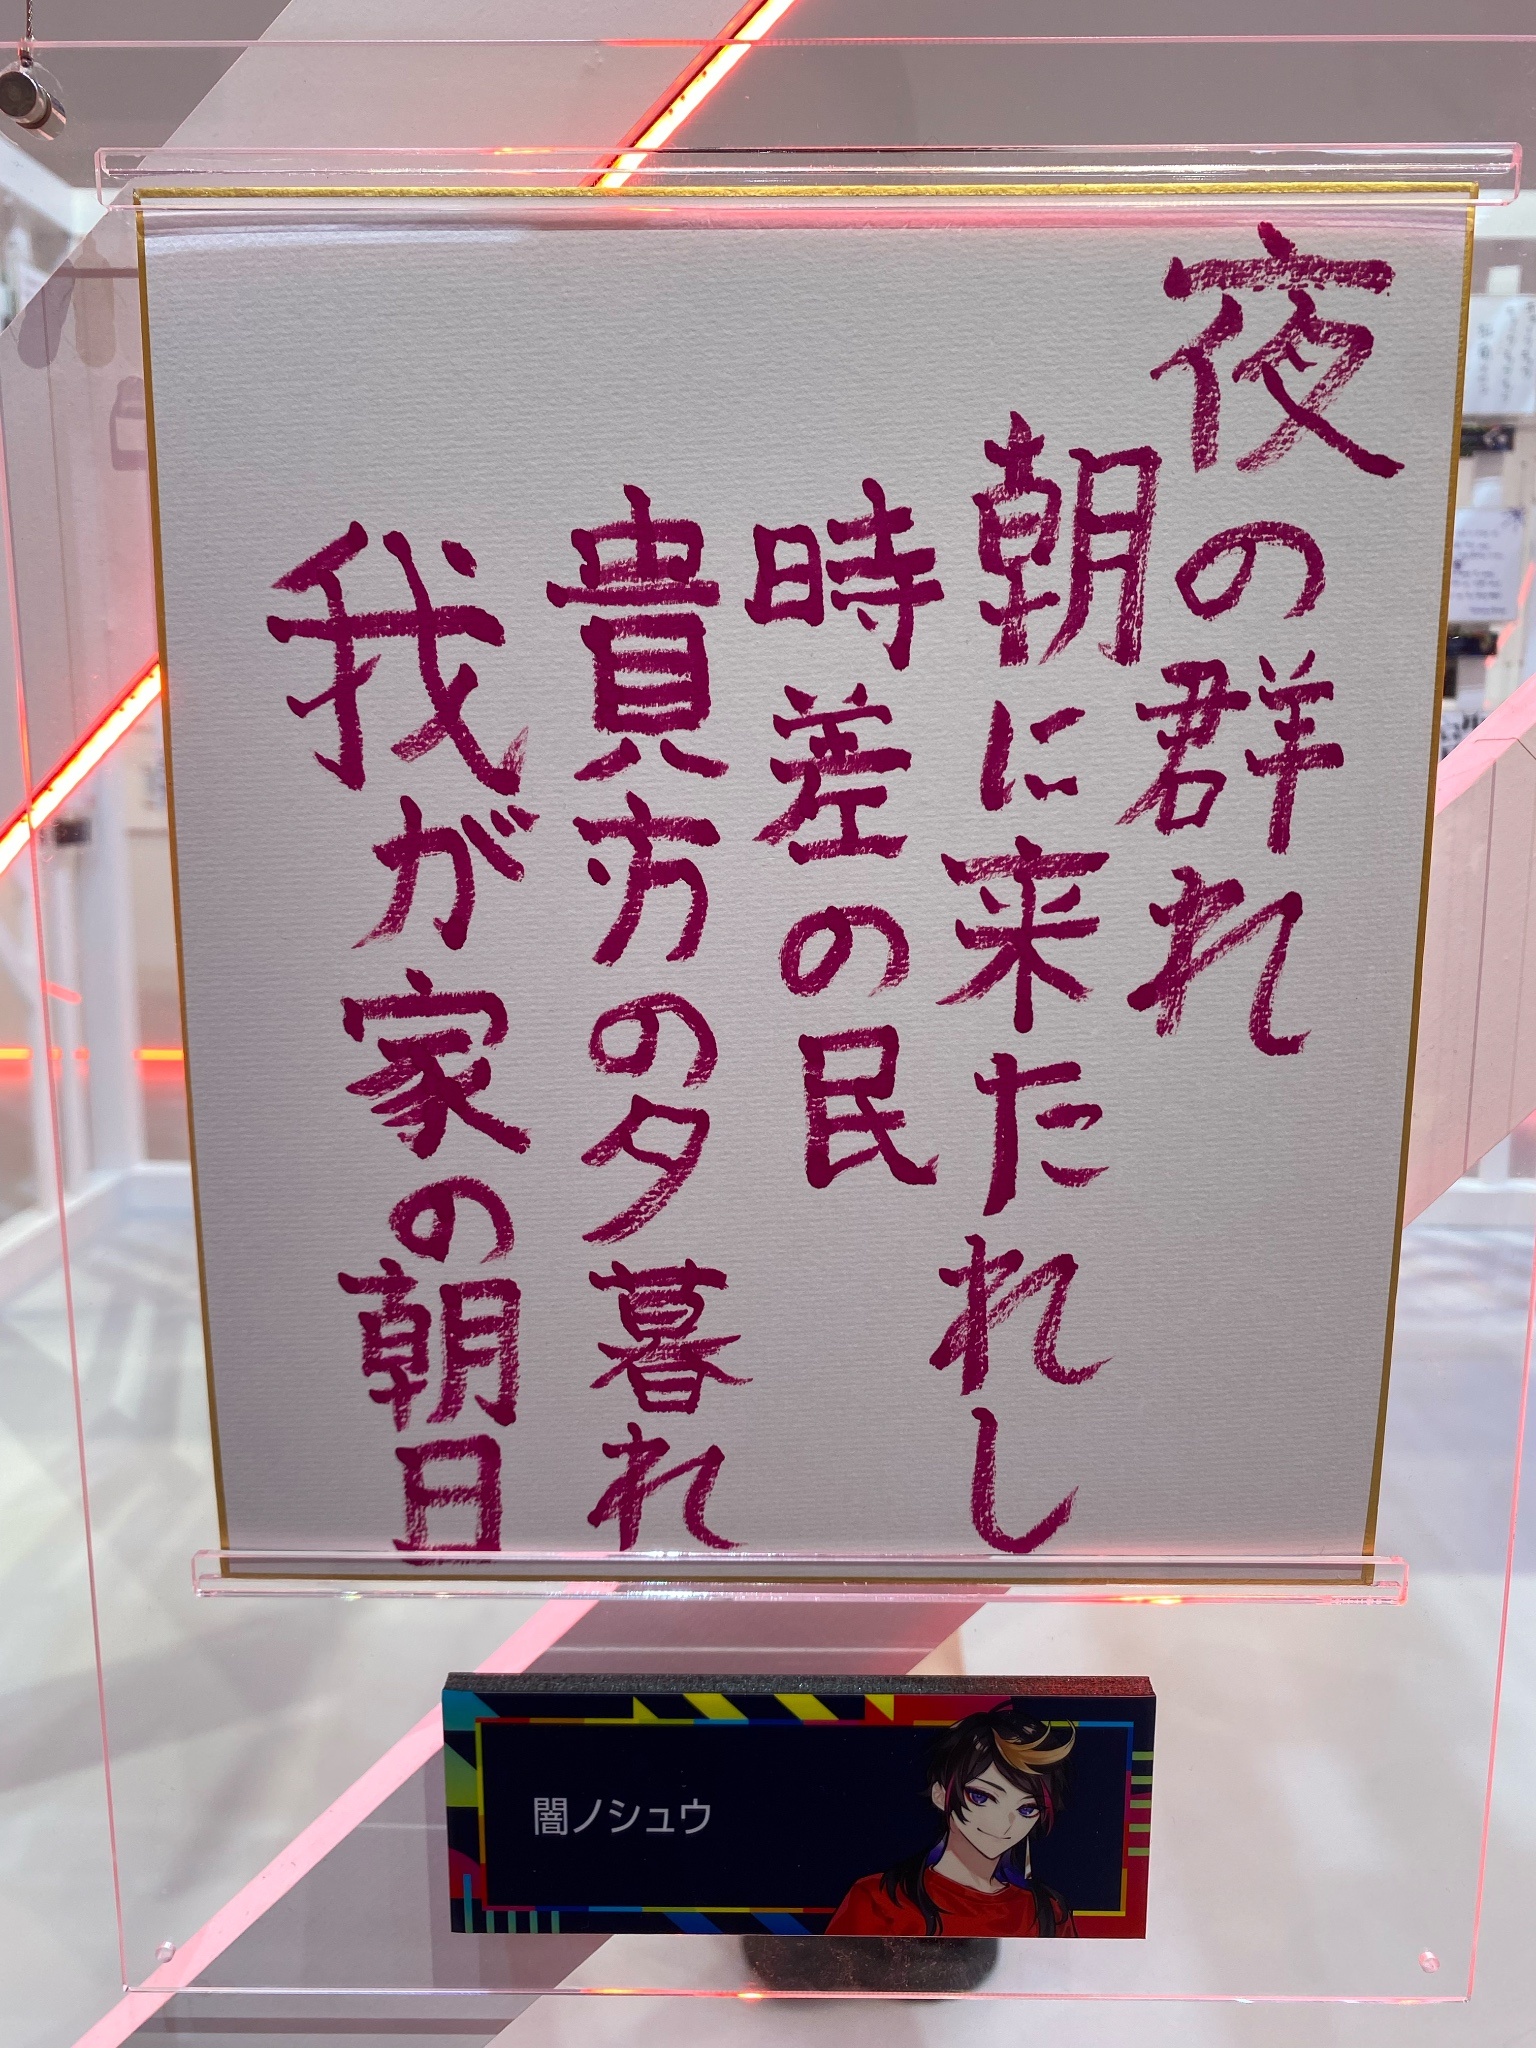 夜の群れ
朝に来たれし
時差の民
貴方の夕暮れ
我が家の朝日
闇ノシュウ